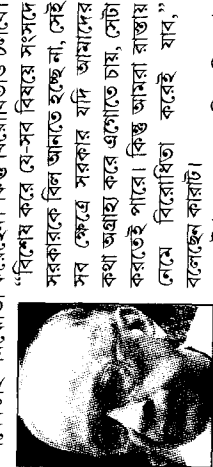 “বিশেষ করে যে-সব বিষয়ে সংসদে
সরকারকে বিল আনতে হচ্ছে না, সেই
সব ক্ষেত্রে সরকার যদি আমাদের
কথা অগ্রাহ্য করে এগোতে চায়, সেটা
করতেই পারে। কিন্তু আমরা রাস্তায়
নেমে বিরোধিতা করেই যাব,”
বলেছেন কারাট।